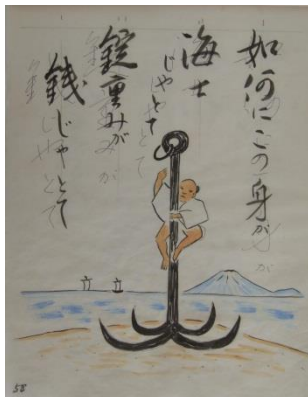 如何にこの身が
海士
じやとて
錠重みが
銭じやとて
58